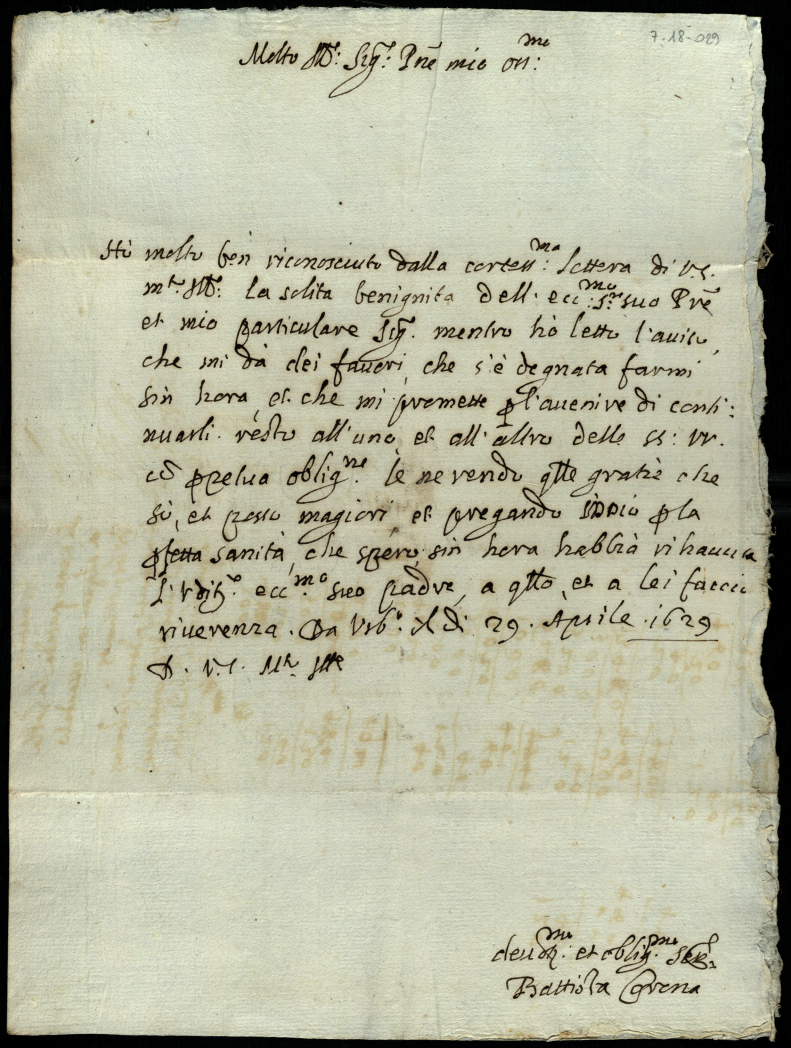 7-18-029
Molto Ill: Sig: Prōe mio oss:mo
Hò molto ben riconosciuto dalla cortess:ma lettera di V.S.
mto. Ill: la solita benignita dell' ecc:mo Sre suo Prē
et mio particulare Sig. mentre hò letto l'auiso,
che mi dà dei fauori, che s'è degnata farmi
sin hora, et che mi promette ꝑ l'auenire di conti:
nuarli. resto all'uno, et all'altro delle SS: VV.
cō ꝑpetua obligne. le ne rendo qlle gratie che
sò, et posso magiori, et pregando Iddio ꝑ la
ꝑfetta sanità, che spero, sin hora habbia rihauuta
l' ecc:mo suo padre, a qllo, et a lei faccio
riuerenza. Da Urb:o li di 29. Aprile .1629
D. V.S. Mto Ille
deuotmo: et obligmo: Ser
Battista